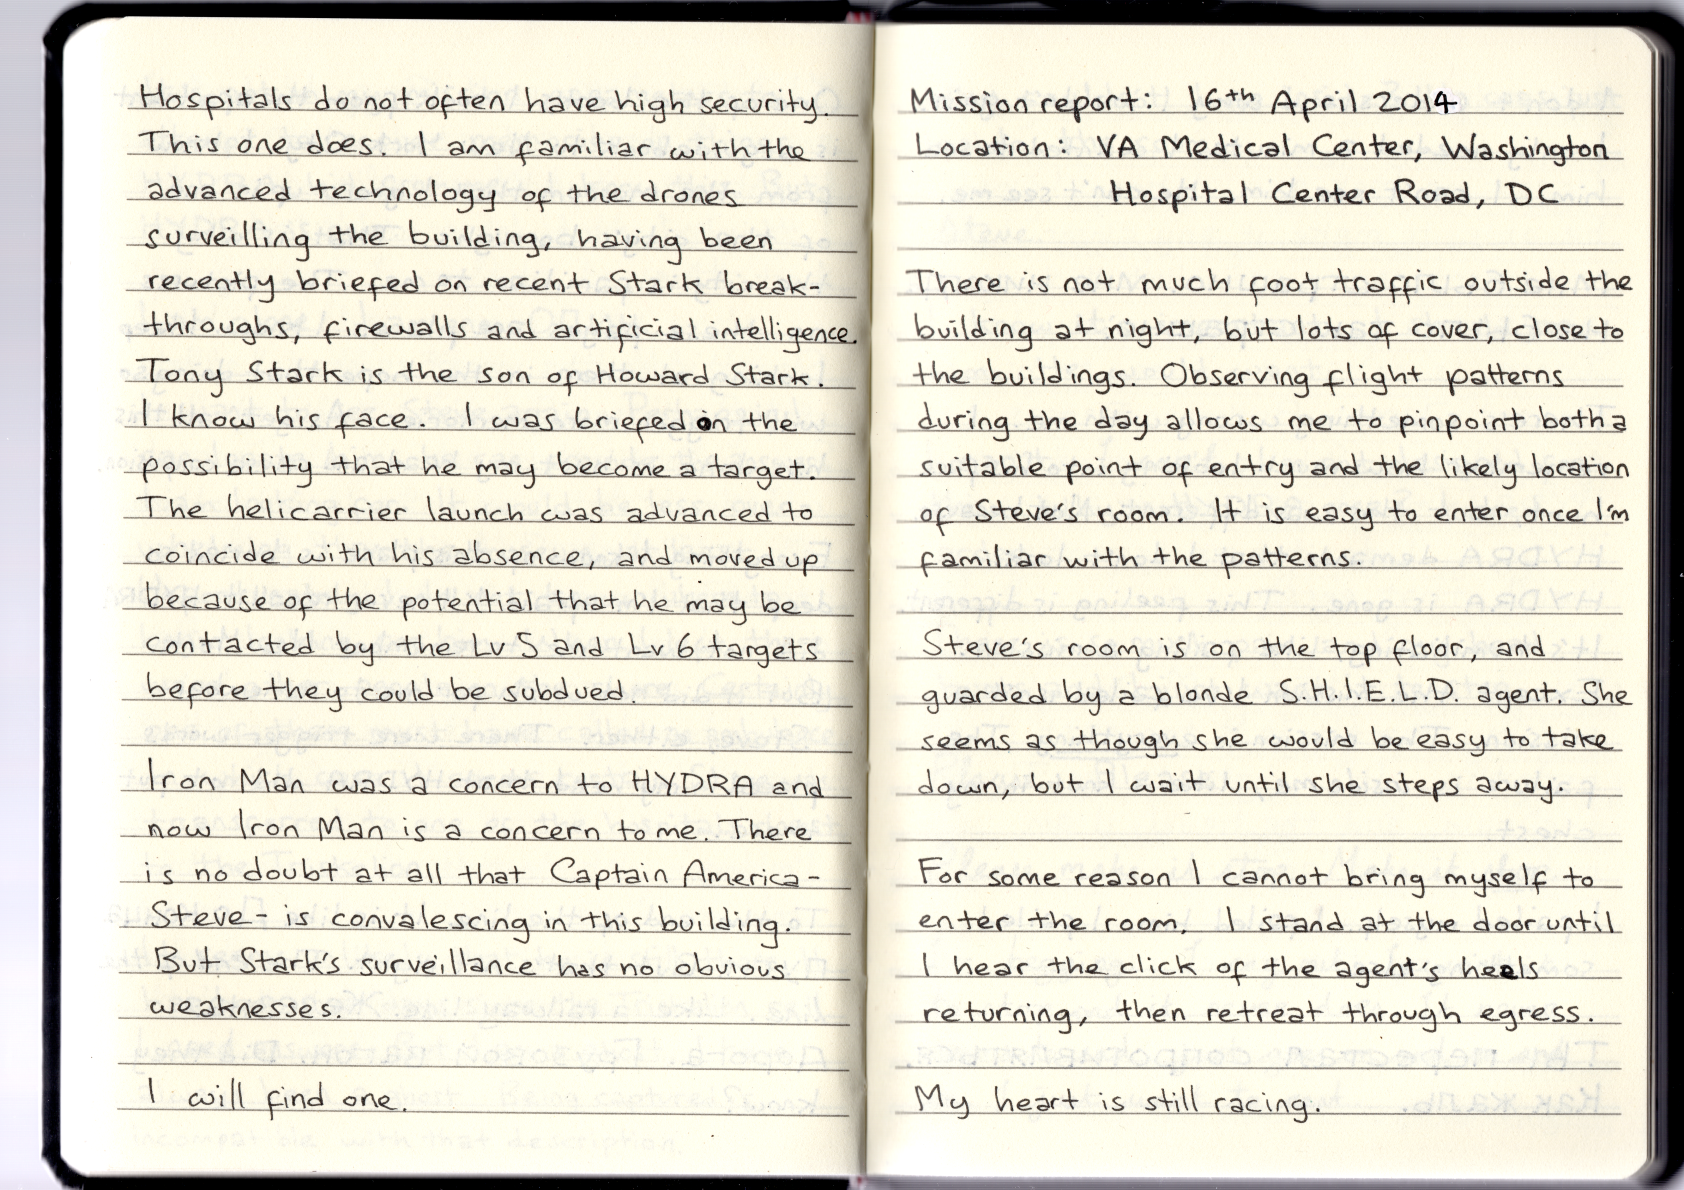 Hospitals do not often have high security.
This one does. I am familiar with the
advanced technology of the drones
surveilling the building, having been
recently briefed on recent Stark break-
throughs, firewalls and artificial intelligence.
Tony Stark is the son of Howard Stark.
I know his face. I was briefed on the
possibility that he may become a target.
The helicarrier launch was advanced to
coincide with his absence, and moved up
because of the potential that he may be
contacted by the Lv 5 and Lv 6 targets
before they could be subdued.
Iron Man was a concern to HYDRA and
now Iron Man is a concern to me. There
is no doubt at all that Captain America -
Steve - is convalescing in this building.
But Stark's surveillance has no obvious
weaknesses.
I will find one.
Mission report: 16th April 2014
Location: VA Medical Center, Washington
Hospital Center Road, DC
There is not much foot traffic outside the
building at night, but lots of cover, close to
the buildings. Observing flight patterns
during the day allows me to pinpoint both a
suitable point of entry and the likely location
of Steve's room. It is easy to enter once I'm
familiar with the patterns.
Steve's room is on the top floor, and
guarded by a blonde S.H.I.E.L.D. agent. She
seems as though she would be easy to take
down, but I wait until she steps away.
For some reason I cannot bring myself to
enter the room. I stand at the door until
I hear the click of the agent's heels
returning, then retreat through egress.
My heart is still racing.